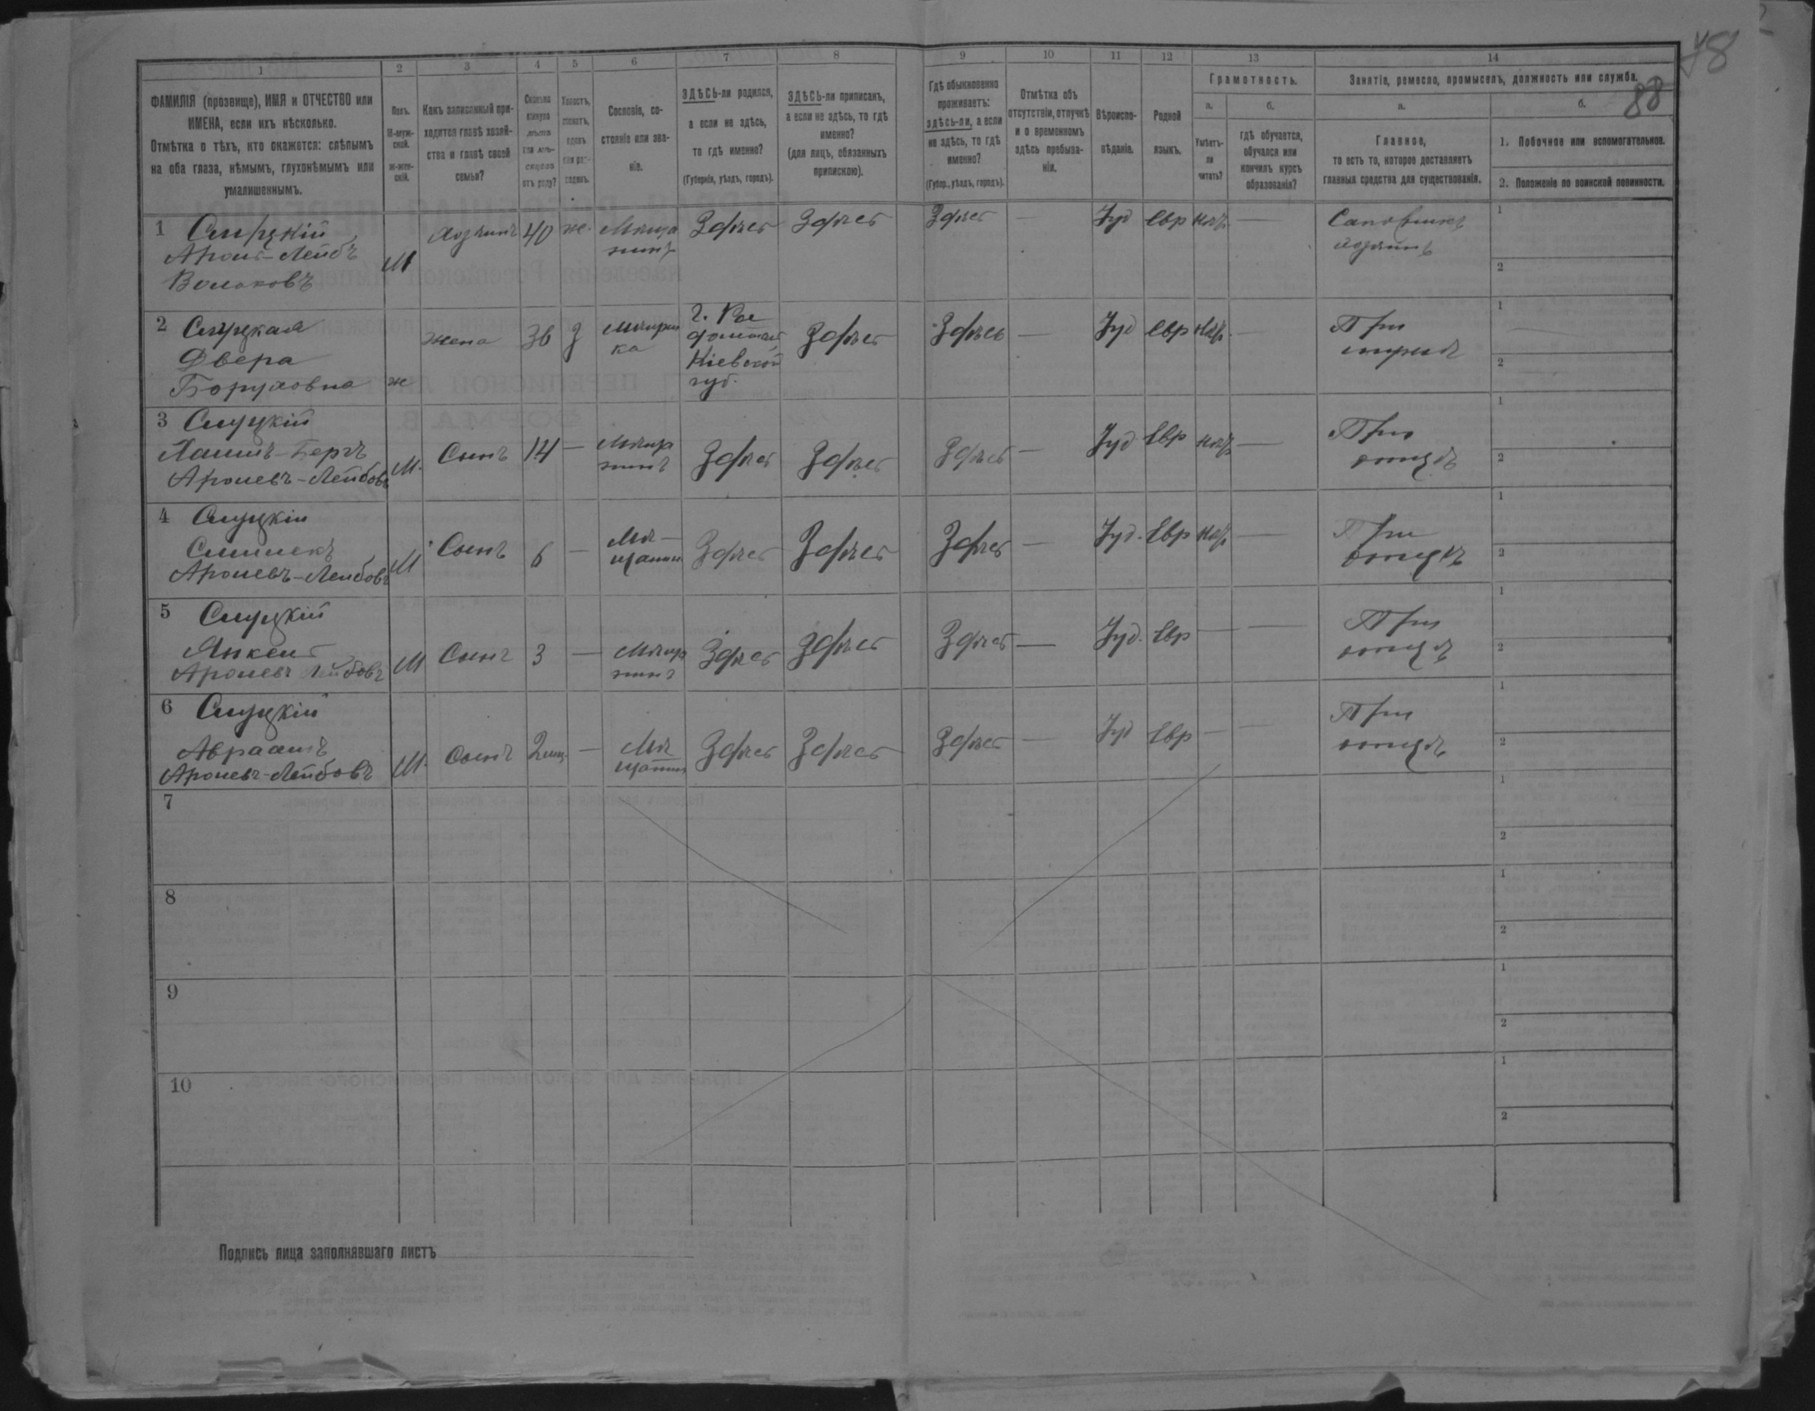 48
88
1 2 3 4 5 6 7 8 9 10 11 12 13 14
ФАМИЛІЯ (прозвище), ИМЯ и ОТЧЕСТВО или
ИМЕНА, если ихъ нѣсколько.
Отмѣтка о тѣхъ, кто окажется: слѣпымъ
на оба глаза, нѣмымъ, глухонѣмымъ или
умалишеннымъ.
Полъ.
М-муж-
ской.
Ж-жен-
скій.
Какъ записанный при-
ходится главѣ хозяй-
ства и главѣ своей
семьи?
Сколько
минуло
лѣтъ
или мѣ-
сяцевъ
отъ роду?
Холостъ,
женатъ,
вдовъ
или раз-
веденъ.
Сословіе, со-
стояніе или зва-
ніе.
ЗДѢСЬ-ли родился,
а если не здѣсь,
то гдѣ именно?
(Губернія, уѣздъ, городъ).
ЗДѢСЬ-ли приписанъ,
а если не здѣсь, то гдѣ
именно?
(для лицъ, обязанныхъ
припискою).
Гдѣ обыкновенно
проживаетъ:
здѣсь-ли, а если
не здѣсь, то гдѣ
именно?
(Губер., уѣздъ, городъ).
Отмѣтка объ
отсутствіи, отлучкѣ
и о временномъ
здѣсь пребыва-
ніи.
Вѣроиспо-
вѣданіе.
Родной
языкъ.
Грамотность.
а. б.
Умѣетъ-
ли
читать?
гдѣ обучается,
обучался или
кончилъ курсъ
образованія?
Занятіе, ремесло, промыселъ, должность или служба.
а. б.
Главное,
то есть то, которое доставляетъ
главныя средства для существованія.
1. Побочное или вспомогательное.
2. Положеніе по воинской повинности.
1 Слуцкій хозяинъ 40 ж. Мѣща Здѣсь Здѣсь Здѣсь — Іуд Евр нѣтъ —
Аронъ-Лейбъ М нинъ хозяинъ
Вольковъ
1
2
2 Слуцкая жена 36 з Мѣщан Здѣсь Здѣсь — Іуд Евр нѣтъ — При
Двера ка мужѣ
Боруховна ж
Кіевской
губ.
1
2
3 Слуцкій Сынъ 14 — Мѣща Здѣсь Здѣсь Здѣсь — Іуд Евр нѣтъ — При
М. нинъ отцѣ
Ароновъ-Лейбовъ
1
2
4 Слуцкій Сынъ 6 — Мѣ- Здѣсь Здѣсь Здѣсь — Іуд. Евр нѣтъ — При
М щанин отцѣ
Ароновъ-Лейбовъ
1
2
5 Слуцкій Сынъ 3 — Мѣща Здѣсь Здѣсь Здѣсь — Іуд. Евр — — При
Янкель М нинъ отцѣ
Ароновъ Лейбовъ
1
2
6 Слуцкій Сынъ 2 мц. — Мѣ Здѣсь Здѣсь Здѣсь — Іуд Евр — — При
Авраамъ М. щанин отцѣ
Ароновъ-Лейбовъ
1
2
7
1
2
8
1
2
9
1
2
10
1
2
Подпись лица заполнявшаго листъ